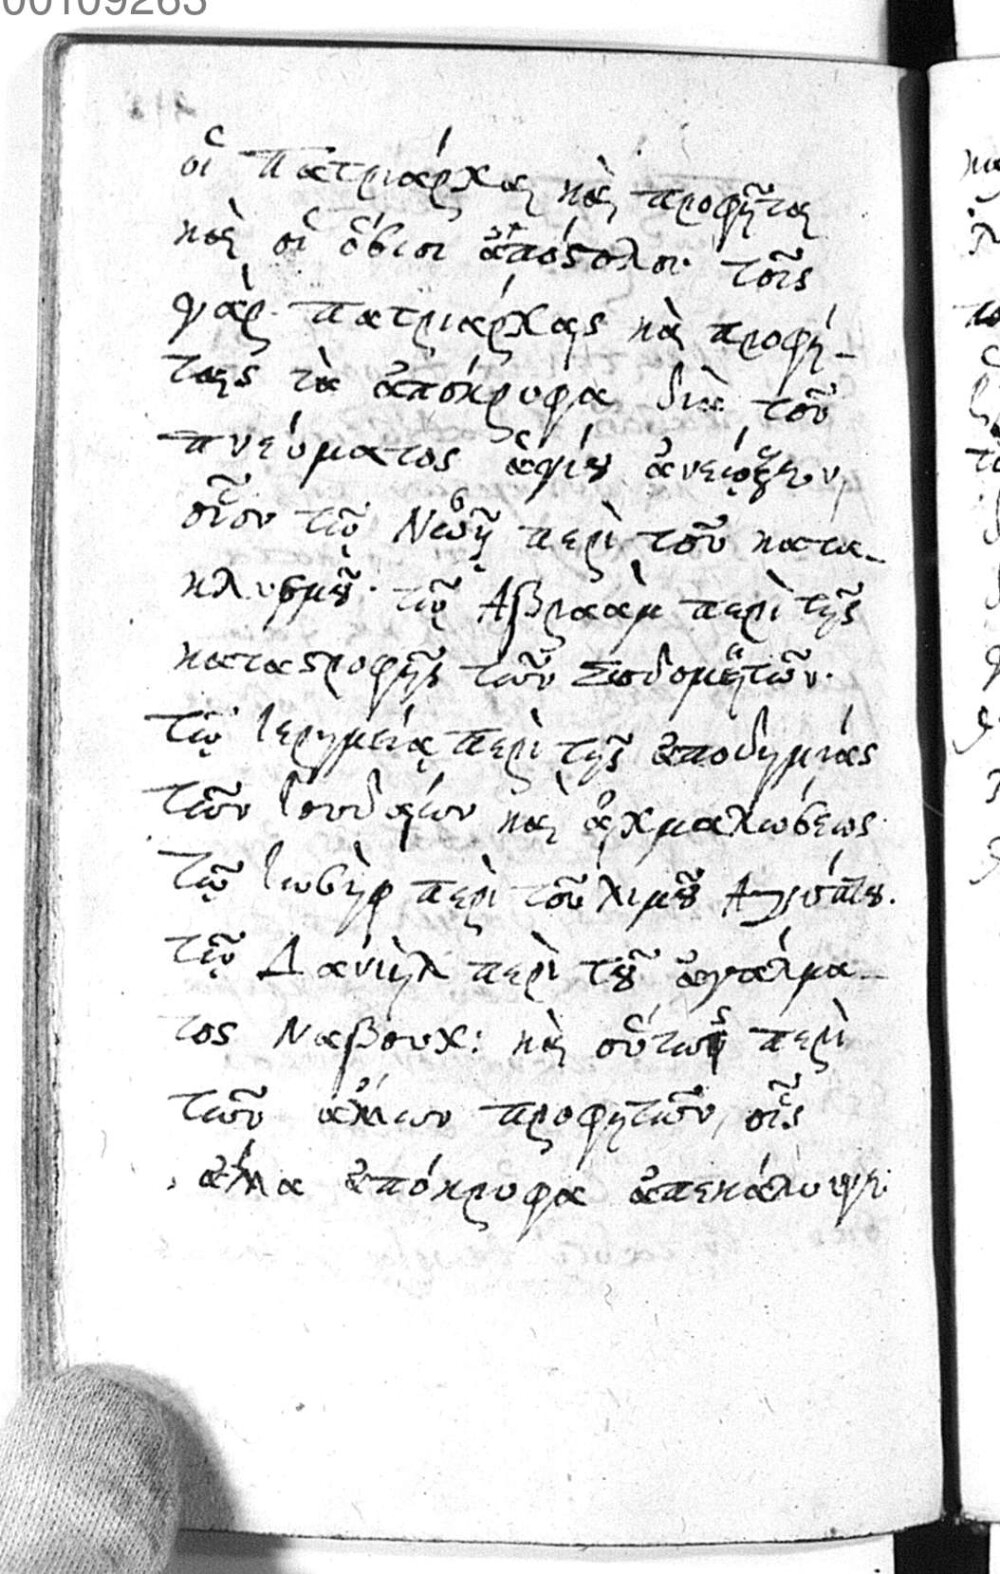 00109263
οἱ Πατριάρχαι καὶ προφῆται
καὶ οἱ ὅσιοι ἀπόστολοι· τοῖς
γὰρ πατριάρχαις καὶ προφή-
ταις τὰ ἀπόκρυφα διὰ τοῦ
πνεύματος ἁγίου ἀνέῳξεν,
οἷον τῷ Νῶε περὶ τοῦ κατα-
κλυσμοῦ· τῷ Ἀβραὰμ περὶ τῆς
καταστροφῆς τῶν Σοδομητῶν·
τῷ Ἱερημείᾳ περὶ τῆς ἀποδημίας
τῶν Ἰουδαίων καὶ αἰχμαλώσεως·
τῷ Ἰωσὴφ περὶ τοῦ λιμοῦ Αἰγύπτου.
τῷ Δανιὴλ περὶ τοῦ ἀγάλμα-
τος Ναβουχ: καὶ οὕτως περὶ
τῶν ἄλλων προφητῶν, οἷς
ἄλλα ἀπόκρυφα ἀπεκάλυψε·